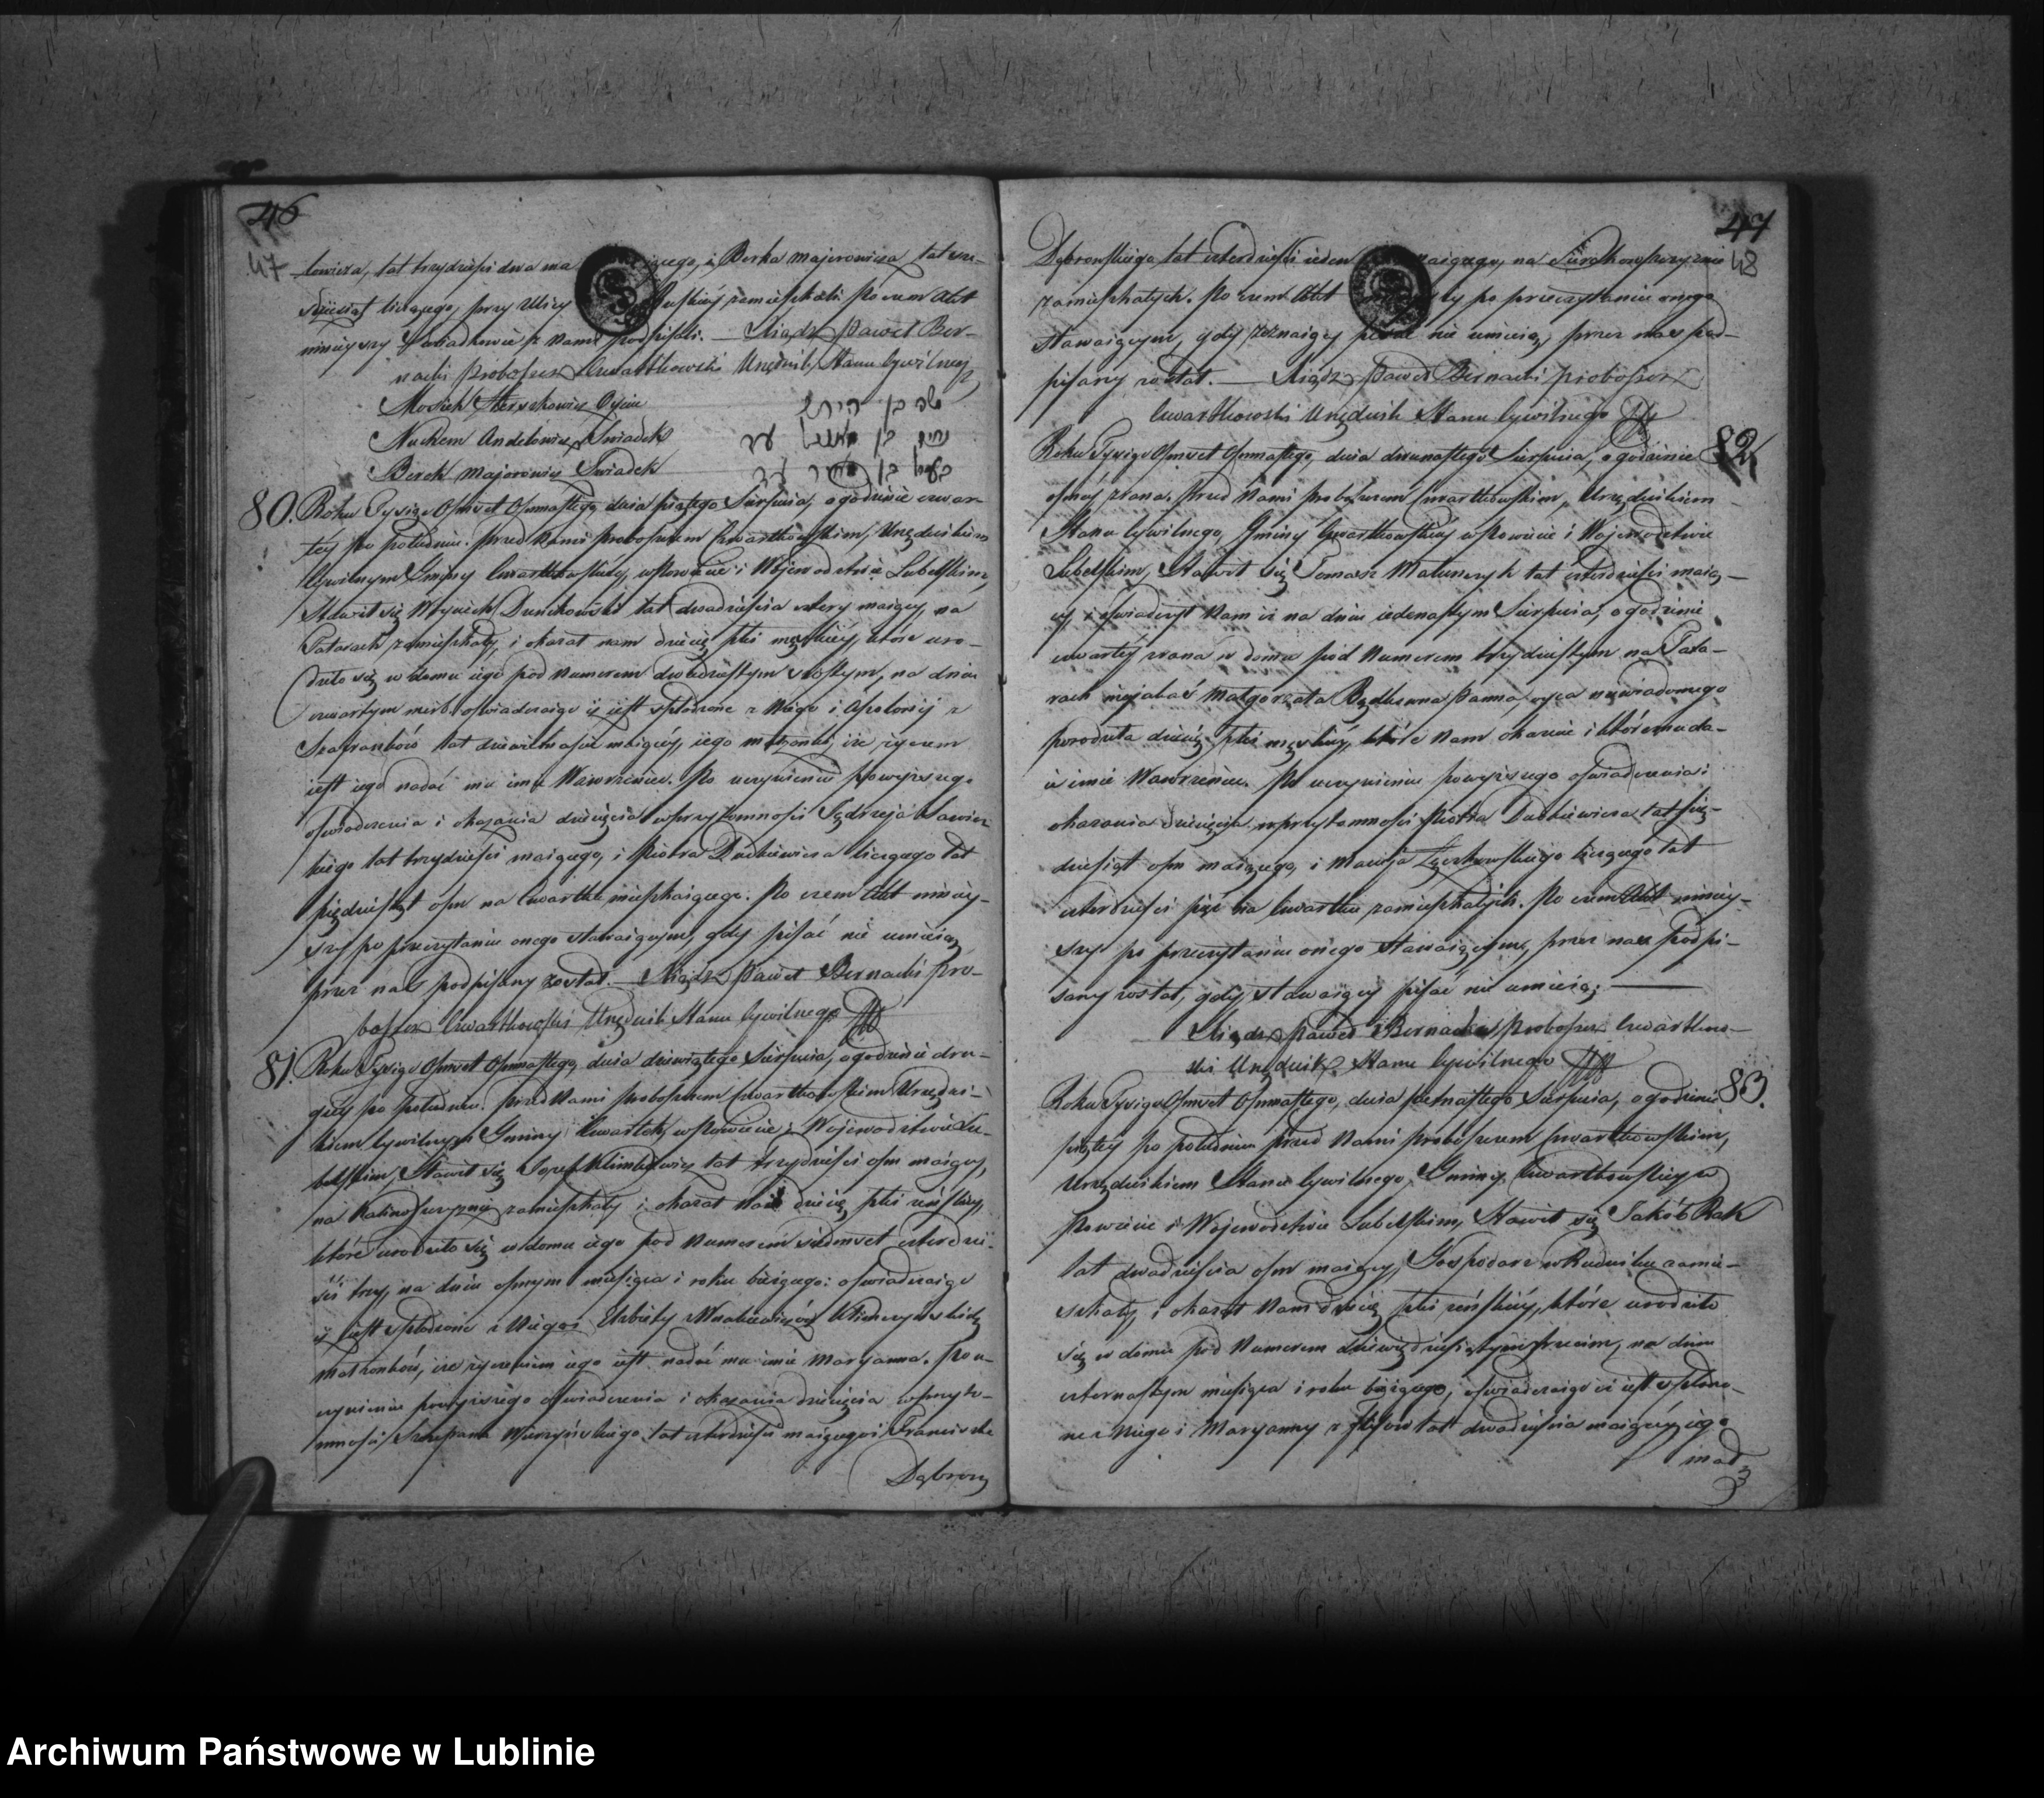 46
47
lowicza, lat trzydzieści dwa ma iącego, i Berka Majerowicza lat sze-
dziesiąt liczącego, przy Ulicy Ruskiey zamieszkali. Po czem Akt
ninieyszy Swiadkowie z nami podpisali. — Xiądz Paweł Ber-
nacki Proboszcz Czwartkowski Urzędnik Stanu Cywilnego
Moszek Herszkowicz Oyciec משה בן הירש
Nuchem Andelowicz Swiadek נחום בן עד
Berek Majorowicz Swiadek בן מאיר עד
80. Roku Tysiąc Osmset Osmnastego, dnia piątego Sierpnia, o godzinie czwar-
tey po południu. Przed Nami Proboszczem Czwartkowskim, Urzędnikiem
Cywilnym Gminy Czwartkowskiey, w Powiecie i Woiewodztwie Lubelskim,
Stawił się Woyciech Dunikowski lat dwadzieścia cztery maiący, na
Tatarach zamieszkały, i okazał nam dziecię płci męzkiey, które uro-
dziło się w domu iego pod Numerem dwudziestym szostym, na dniu
czwartym mieś. oświadczaiąc iż iest spłodzone z Niego i Apolonij z
Szafranków lat dziewiętnaście maiącey, iego małżonki, i że życzeniem
iest iego nadać mu imie Wawrzeniec. Po uczynieniu powyższego
oświadczenia i okazania dziecięcia w przytomności Jędrzeja Sawic-
kiego lat trzydzieści maiącego, i Piotra Dudkiewicza liczącego lat
pięćdziesiąt osm na Czwartku mieszkaiącego. Po czem Akt niniey-
szy po przeczytaniu onego stawaiącym, gdy pisać nie umieią
przez nas podpisany został. — Xiądz Paweł Bernacki Pro-
boszcz Czwartkowski Urzędnik Stanu Cywilnego
81. Roku Tysiąc Osmset Osmnastego, dnia dziewiątego Sierpnia, o godzinie dru-
giey po południu. Przed Nami Proboszczem Czwartkowskim Urzędni-
kiem Cywilnym Gminy Czwartek, w Powiecie i Woiewodztwie Lu-
belskim, Stawił się Jozef Klimkiewicz lat trzydzieści osm maiący,
na Kalinoszczyznie zamieszkały i okazał Nam dziecię płci żeńskiey,
które urodziło się w domu iego pod Numerem siedmset czterdzie-
ści trzy, na dniu osmym miesiąca i roku bieżącego: oświadczaiąc
iż iest spłodzone z Niego i Elzbiety
małzonków, i że życzeniem iego iest nadać mu imie Maryanna. Po u-
czynieniu powyższego oświadczenia i okazania dziecięcia w przyto-
mności Szczepana lat czterdzieści maiącego i Franciszka
Dąbrow
47
48
Dąbrowskiego lat czterdzieści ieden maiącego, na Sierakowszczyznie
zamieszkałych. Po czem Akt ninieyszy po przeczytaniu onego
stawaiącym, gdy zeznaiący pisać nie umieią, przez nas pod-
pisany został. — Xiądz Paweł Bernacki Proboszcz
Czwartkowski Urzędnik Stanu Cywilnego
82. Roku Tysiąc Osmset Osmnastego, dnia dwunastego Sierpnia, o godzinie
osmey zrana. Przed Nami Proboszczem Czwartkowskim, Urzędnikiem
Stanu Cywilnego, Gminy Czwartkowskiey w Powiecie i Woiewodztwie
Lubelskim, Stawił się Tomasz Matuszczyk lat czterdzieści maią-
cy i oświadczył Nam iż na dniu iedenastym Sierpnia, o godzinie
czwartey zrana w domu pod Numerem trzydziestym na Tata-
rach Małgorzata Panna, z oyca niewiadomego
porodziła dziecię płci męzkiey, które Nam okazuie i któremu da-
ie imie Wawrzeniec. Po uczynieniu powyższego oświadczenia i
okazania dziecięcia w przytomności Piotra Dudkiewicza lat pięć-
dziesiąt osm maiącego, i Macieja liczącego lat
czterdzieści pięć na Czwartku zamieszkałych. Po czem Akt niniey-
szy po przeczytaniu onego stawaiącym, przez nas podpi-
sany został, gdy stawaiący pisać nie umieią. —
Xiądz Paweł Bernacki Proboszcz Czwartkow-
ski Urzędnik Stanu Cywilnego
83. Roku Tysiąc Osmset Osmnastego, dnia pietnastego Sierpnia, o godzinie
piątey po południu przed Nami Proboszczem Czwartkowskim,
Urzędnikiem Stanu Cywilnego, Gminy Czwartkowskiey w
Powiecie i Woiewodztwie Lubelskim, Stawił się Jakób Rak
lat dwadzieścia osm maiący, Gospodarz w Rudniku zamie-
szkały, i okazał Nam dziecię płci żeńskiey, które urodziło
się w domu pod Numerem dziewiędziesiątym trzecim, na dniu
czternastym miesiąca i roku bieżącego, oświadczaiąc iż iest spłodzo-
ne z Niego i Maryanny z lat dwadzieścia maiącey, iego
małz
Archiwum Państwowe w Lublinie